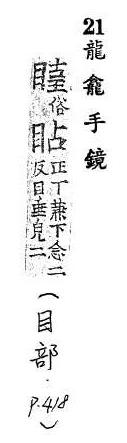 21 龍龕手鏡
俗䀡正丁兼下念二
反目垂皃二
（目部．P.418）